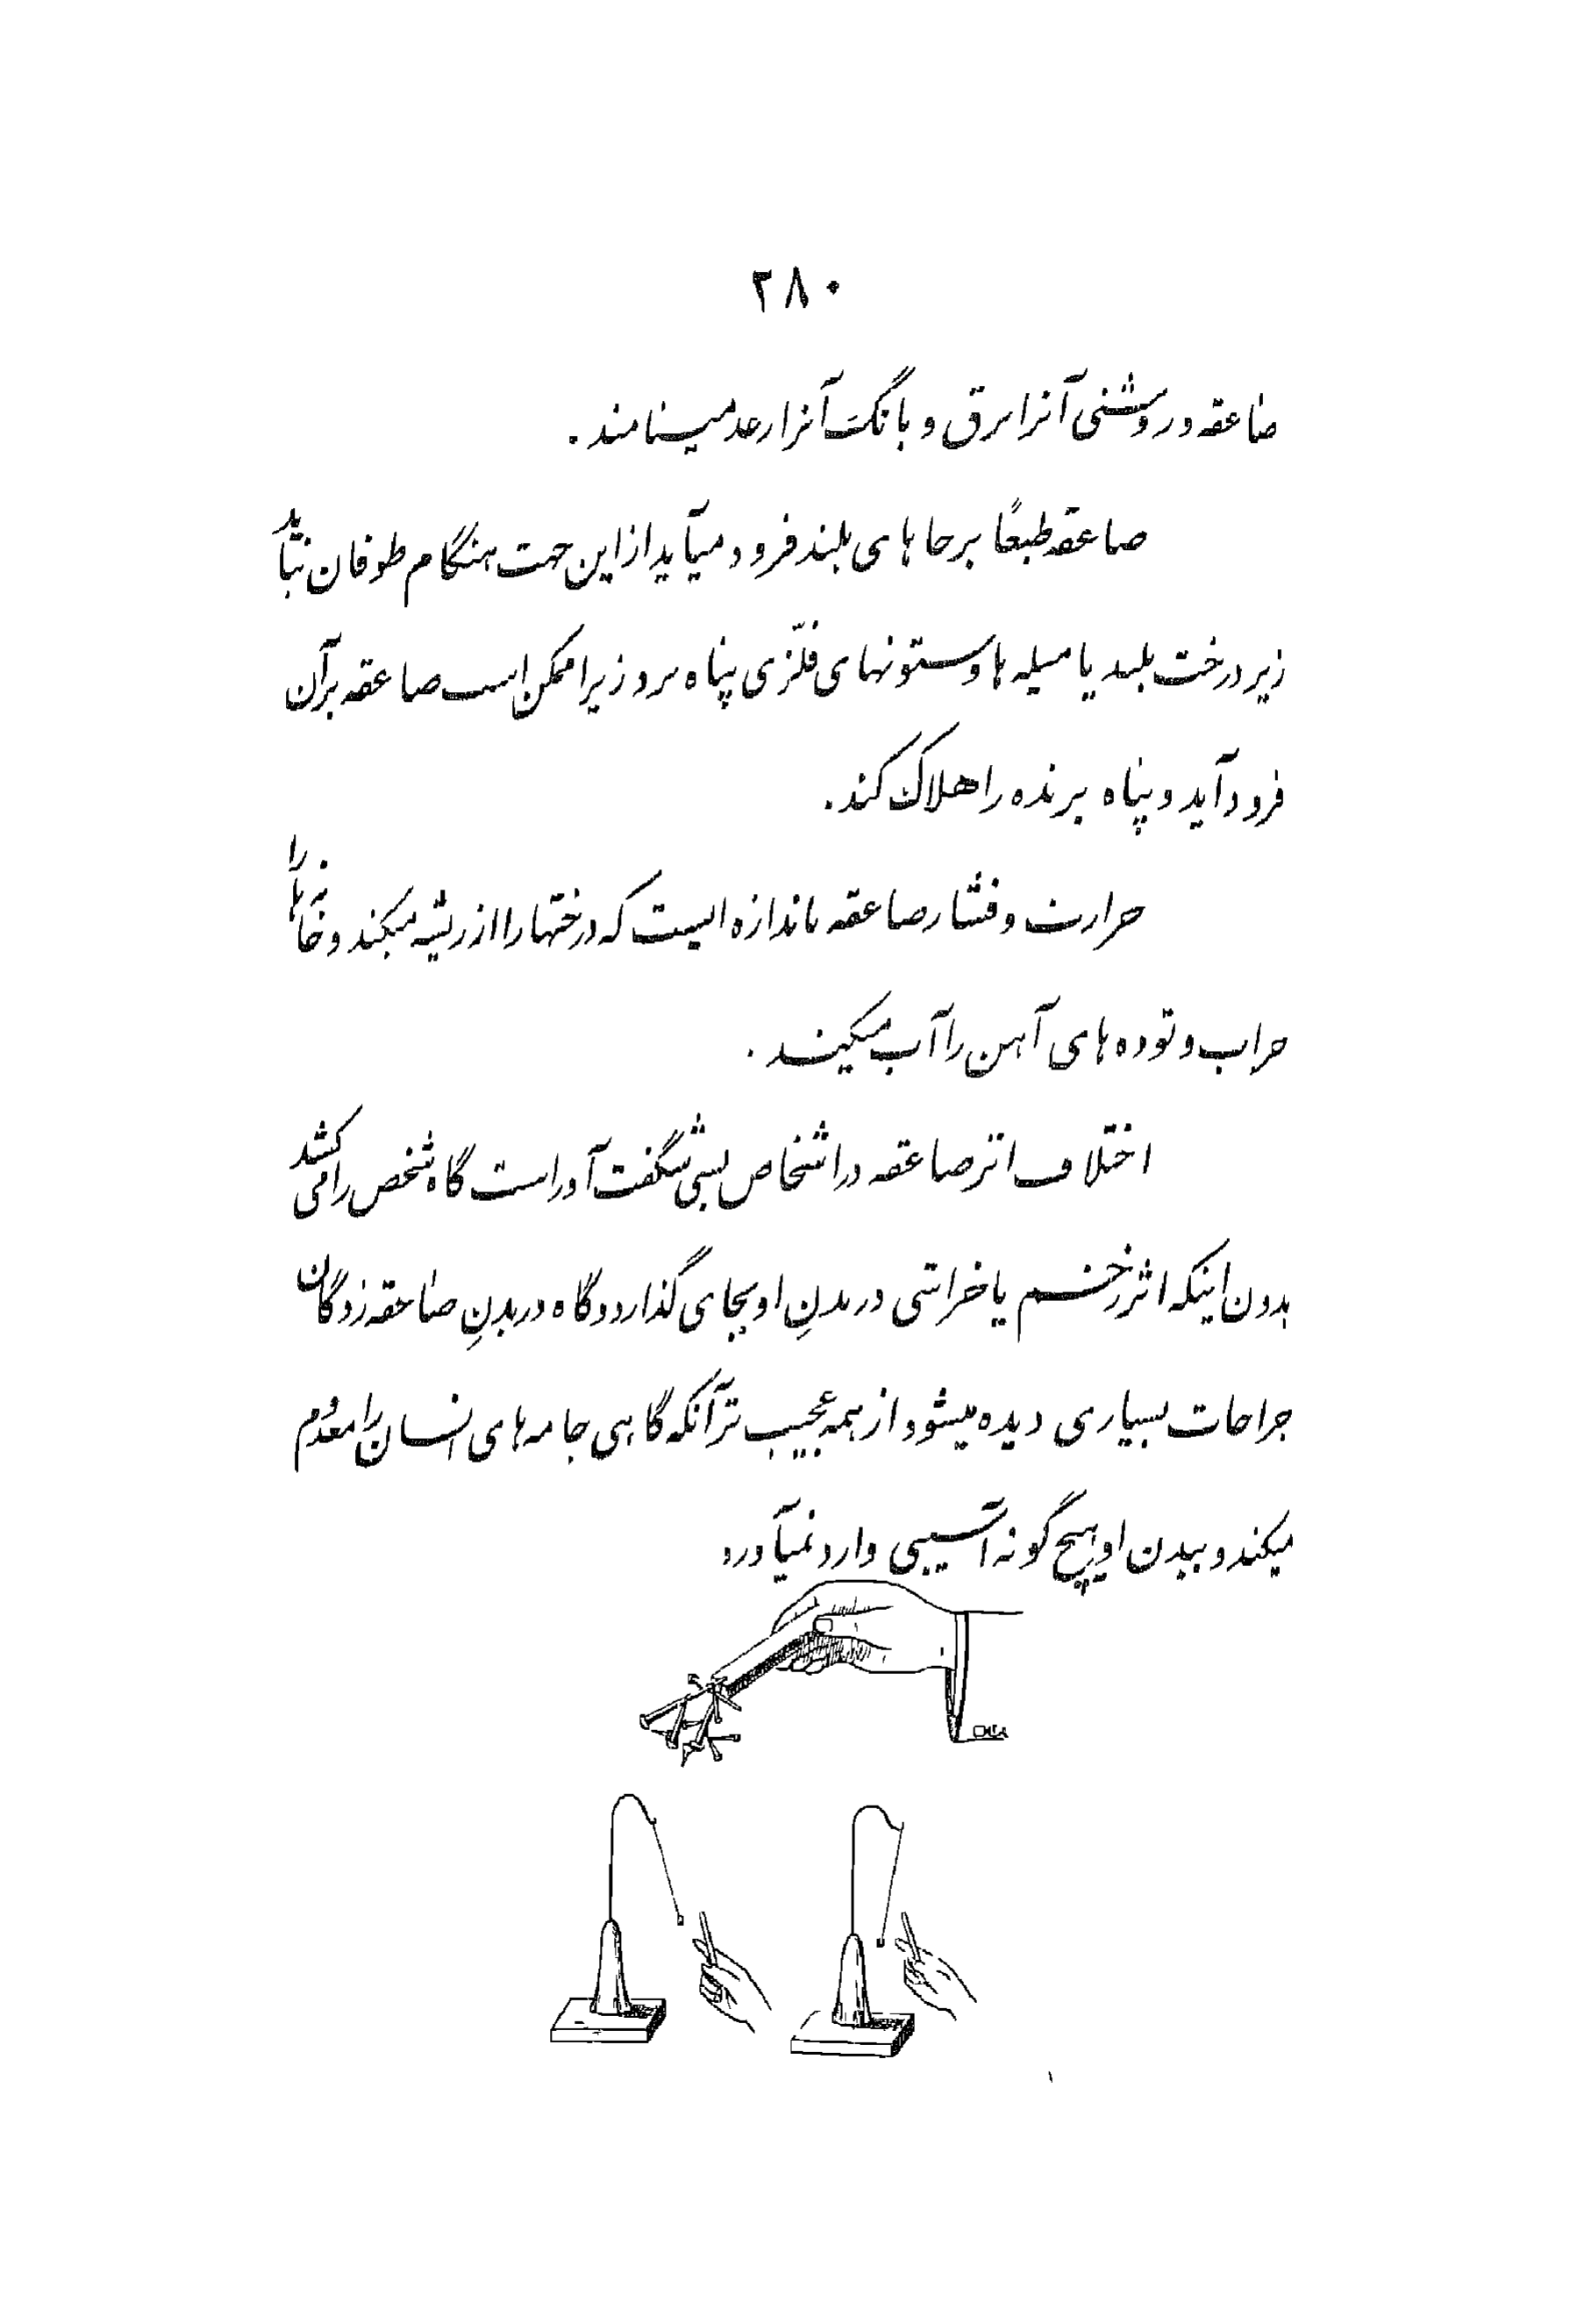 ۲۸۰
صاعقه و روشنی آنرا برق و بانگ آنرا رعد مینامند .
صاعقه طبعًا برجاهای بلند فرود میآید از این جهت هنگام طوفان نباید
زیر درخت بلند یا میله ها و ستونهای فلّزی پناه برد زیرا ممکن است صاعقه برآن
فرود آید و پناه برنده را هلاک کند .
حرارت و فشار صاعقه باندازه ایست که درختها را از ریشه میکند و خانه ها را
خراب و توده های آهن را آب میکند .
اختلاف اثر صاعقه در اشخاص بسی شگفت آور است گاه شخص را می کشد
بدون اینکه اثر زخم یا خراشی در بدنِ او بجای گذارد و گاه در بدنِ صاعقه زدگان
جراحات بسیاری دیده میشود و از همه عجیب تر آنکه گاهی جامه های انسان را معدوم
میکند و ببدن او هیچ گونه آسیبی وارد نمیآورد